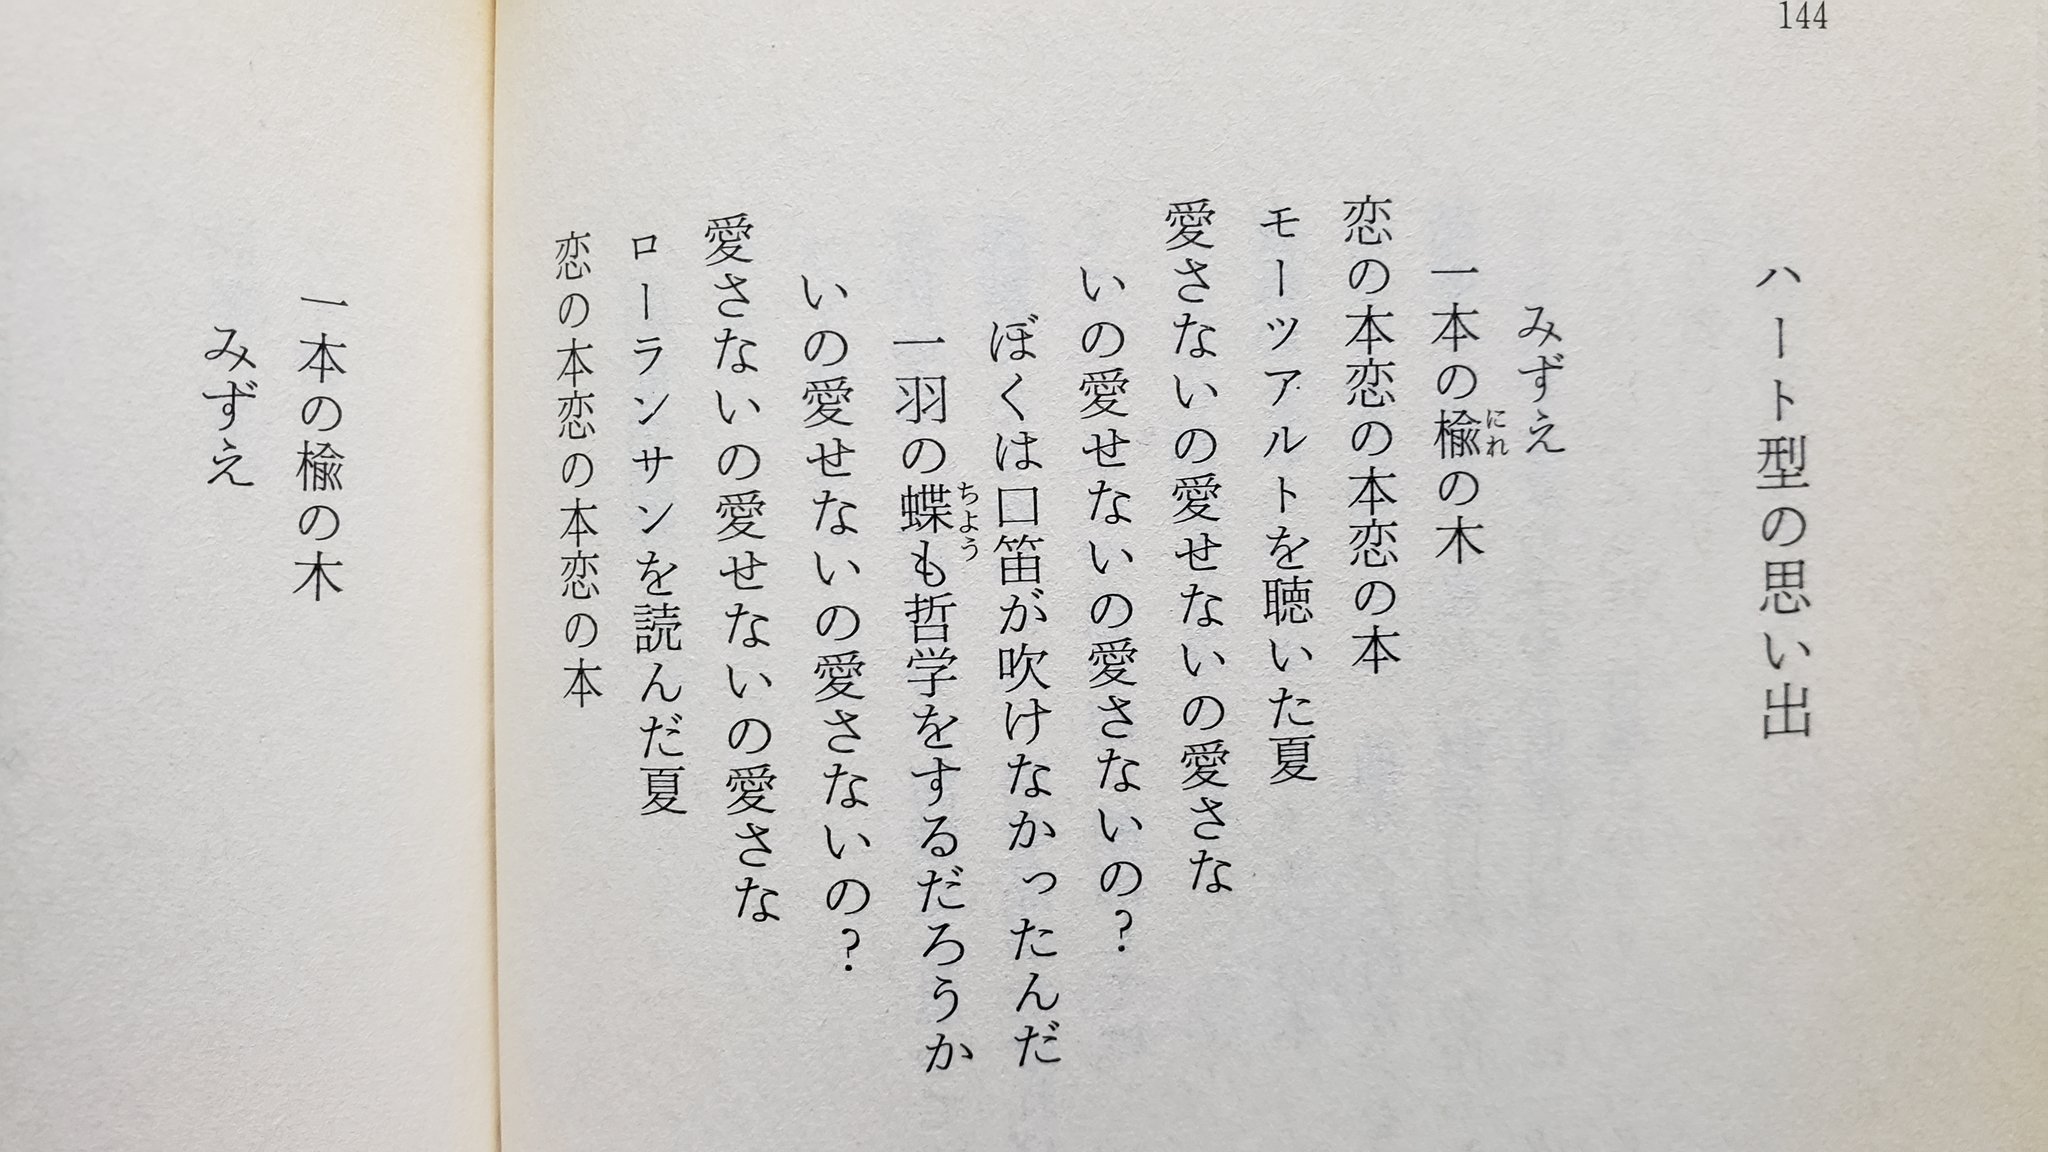 144
ハート型の思い出
みずえ
一本の楡の木
にれ
恋の本恋の本恋の本
モーツアルトを聴いた夏
愛さないの愛せないの愛さな
いの愛せないの愛さないの?
ぼくは口笛が吹けなかったんだ
一羽の蝶も哲学をするだろうか
ちよう
いの愛せないの愛さないの?
愛さないの愛せないの愛さな
ローランサンを読んだ夏
恋の本恋の本恋の本
一本の楡の木
みずえ